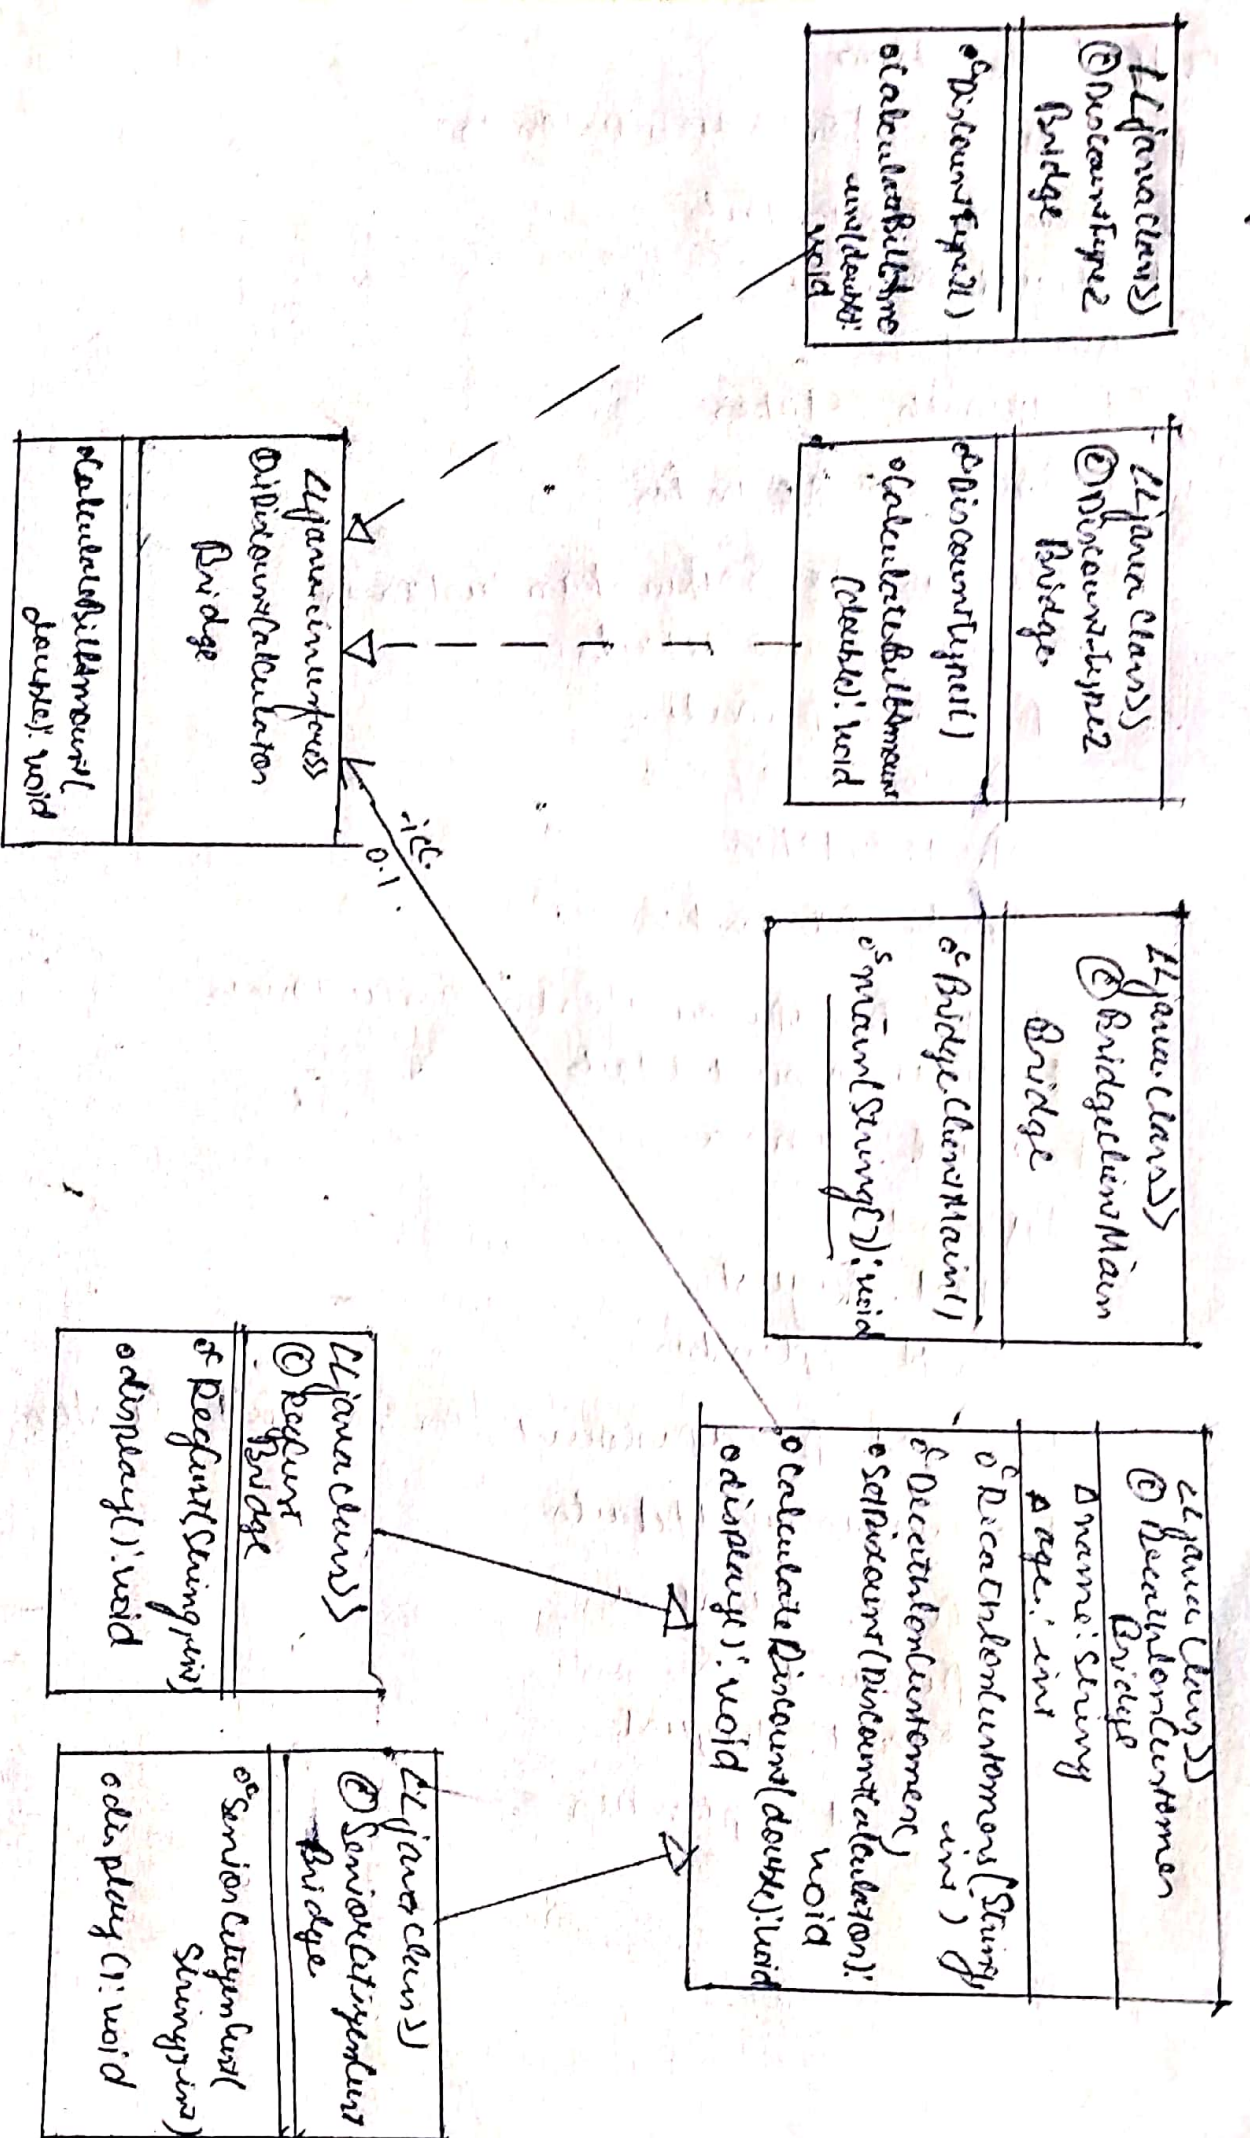 <<java Class>>
Ⓒ Discount type2
Bridge
DiscountType2()
CalculateBillAmo
unt(double):
void
<<java Class>>
Ⓒ Discount-type2
Bridge
DiscountType1()
CalculateBillAmount
(double): void
<<java Class>>
Ⓒ BridgeClientMain
Bridge
BridgeClientMain()
main(String[]): void
<<java Class>>
Ⓒ DecathlonCustomer
Bridge
name: String
age: int
DecathlonCustomers(String,
int)
DecathlonCustomer()
SetDiscount(Discountcalculator):
void
CalculateDiscount(double): void
display(): void
<<java interface>>
iDiscountCalculator
Bridge
CalculateBillAmount(
double): void
0.1
<<java class>>
Ⓒ RegCust
Bridge
RegCust(String, int)
display(): void
<<java class>>
Ⓒ SeniorCitizenCust
Bridge
SeniorCitizenCust(
String, int)
display(): void